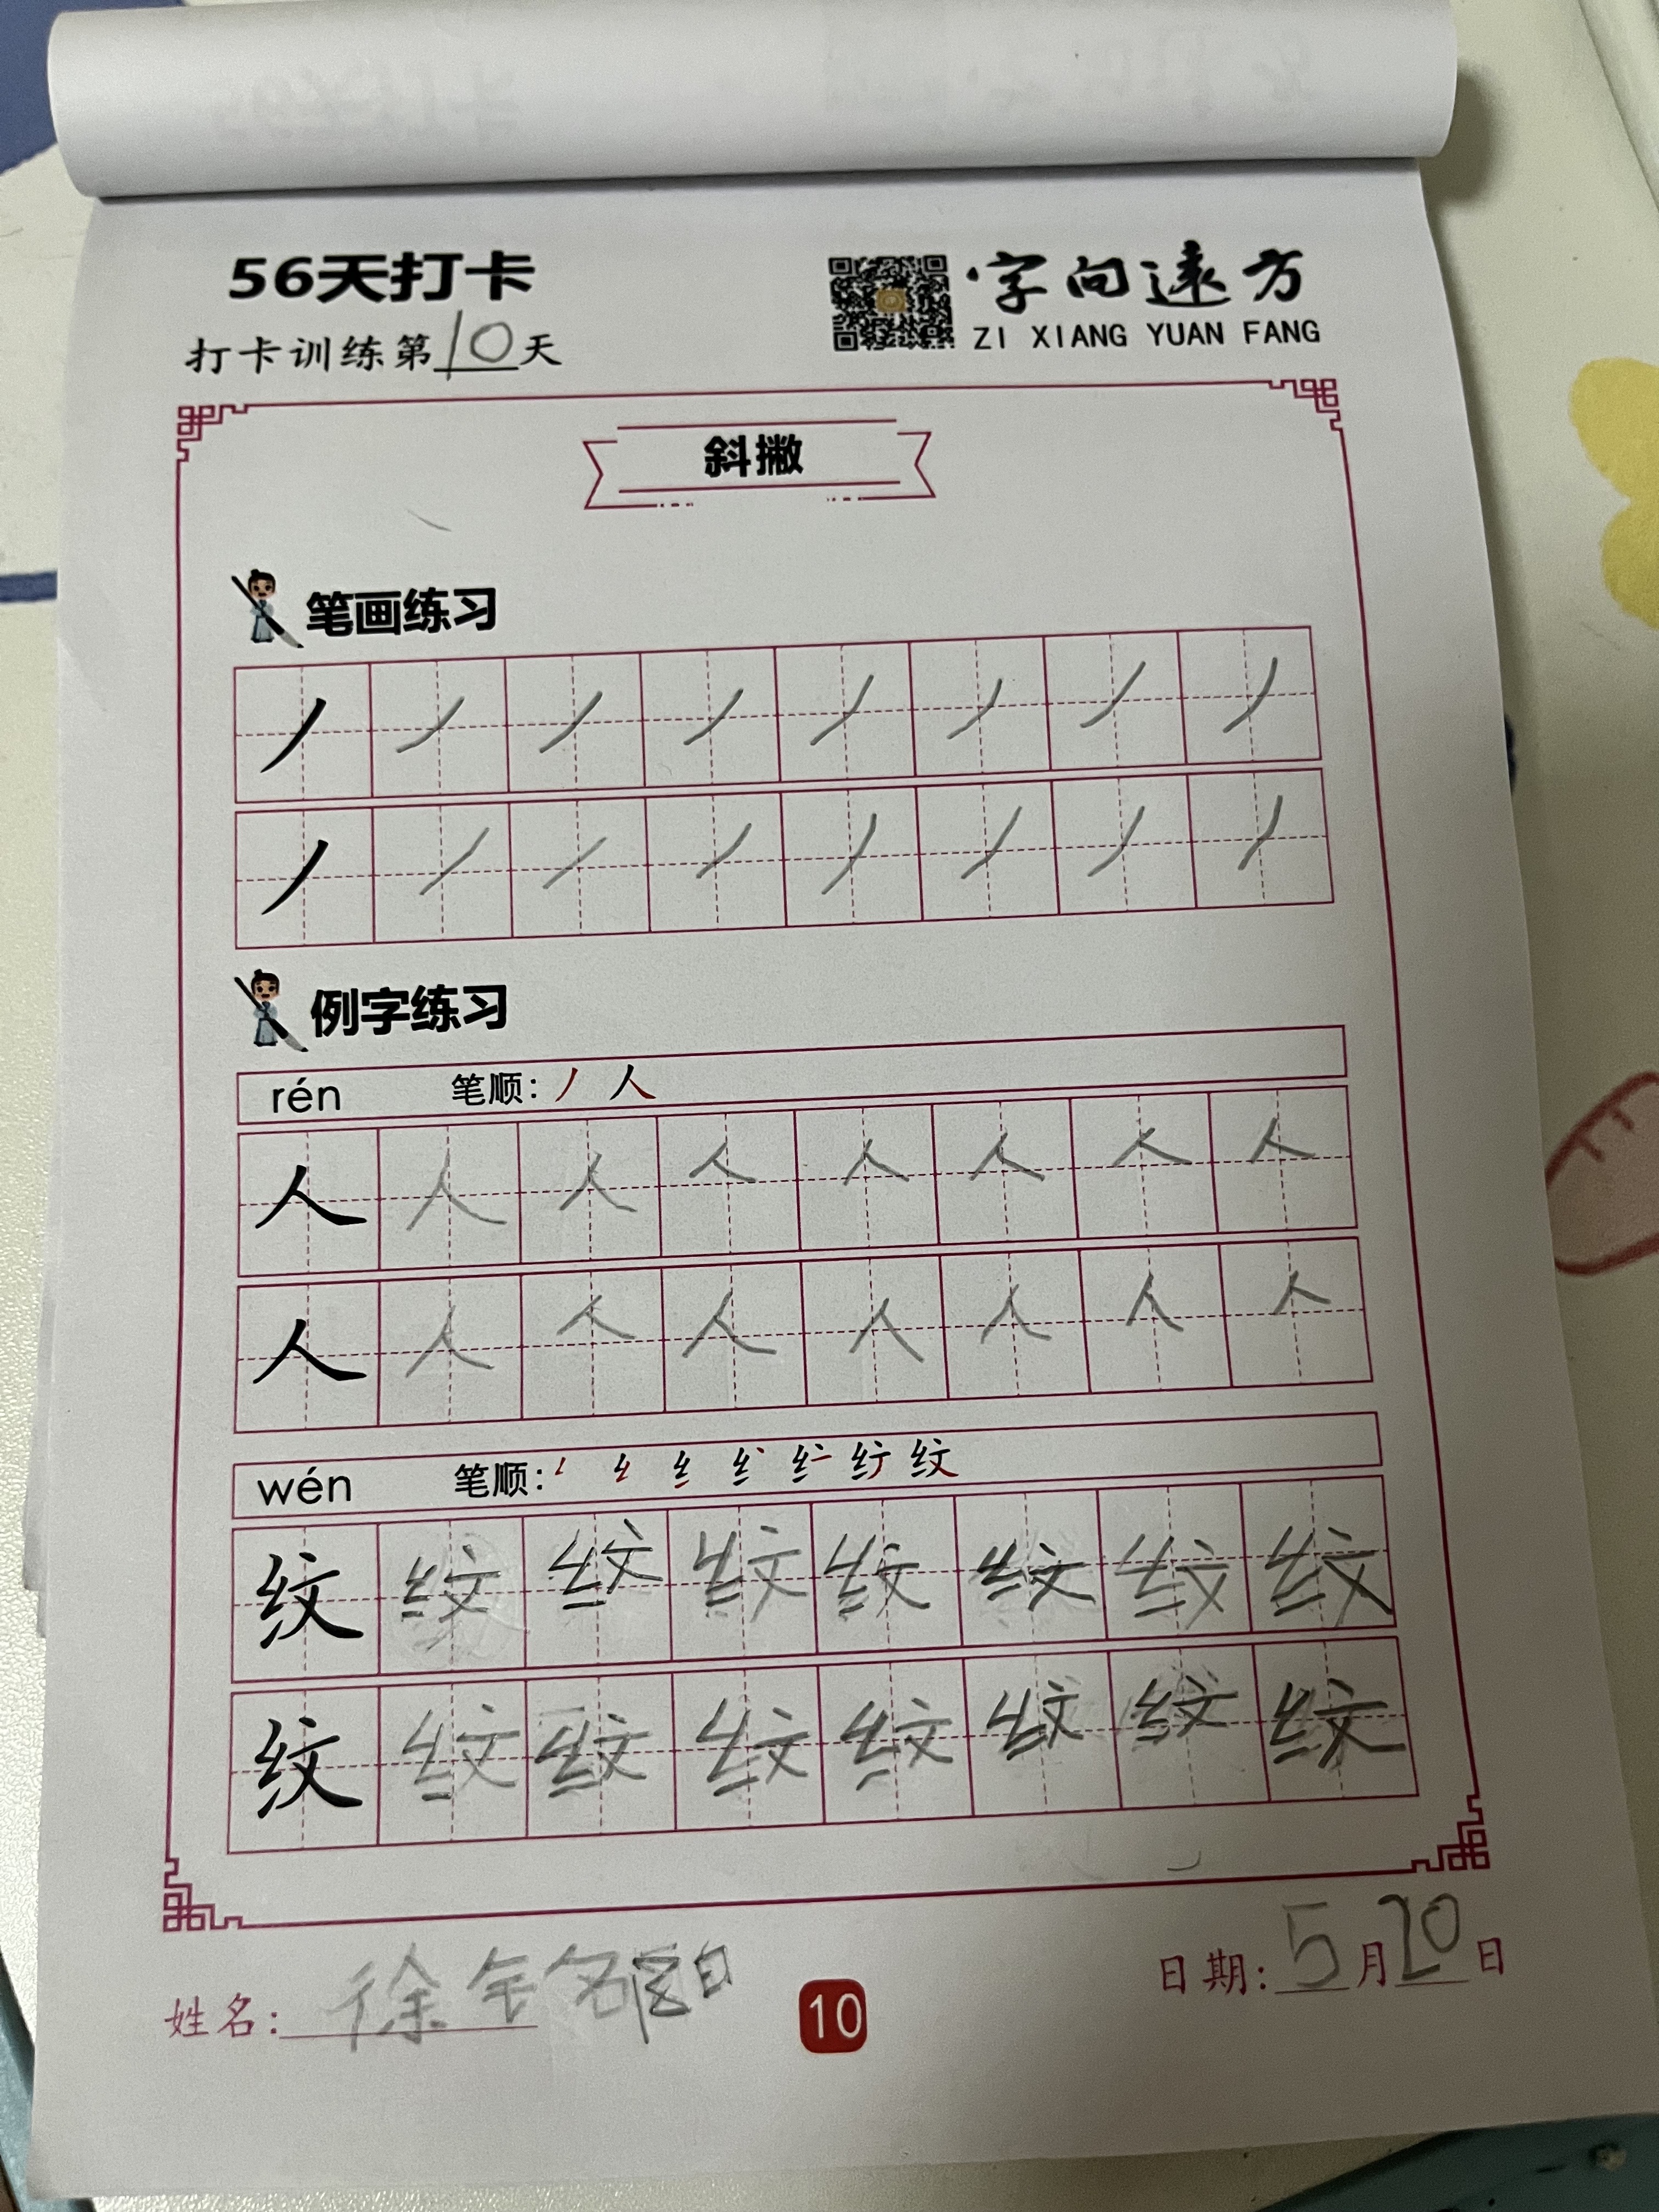 56天打卡
字向远方
ZI XIANG YUAN FANG
打卡训练第10天
斜撇
笔画练习
丿 丿 丿 丿 丿 丿 丿 丿
丿 丿 丿 丿 丿 丿 丿 丿
例字练习
rén 笔顺: 丿 人
人 人 人 人 人 人 人 人
人 人 人 人 人 人 人 人
wén 笔顺:
纹 纹 纹 纹 纹 纹 纹 纹
纹 纹 纹 纹 纹 纹 纹 纹
姓名: 徐
日期: 5月20日
10